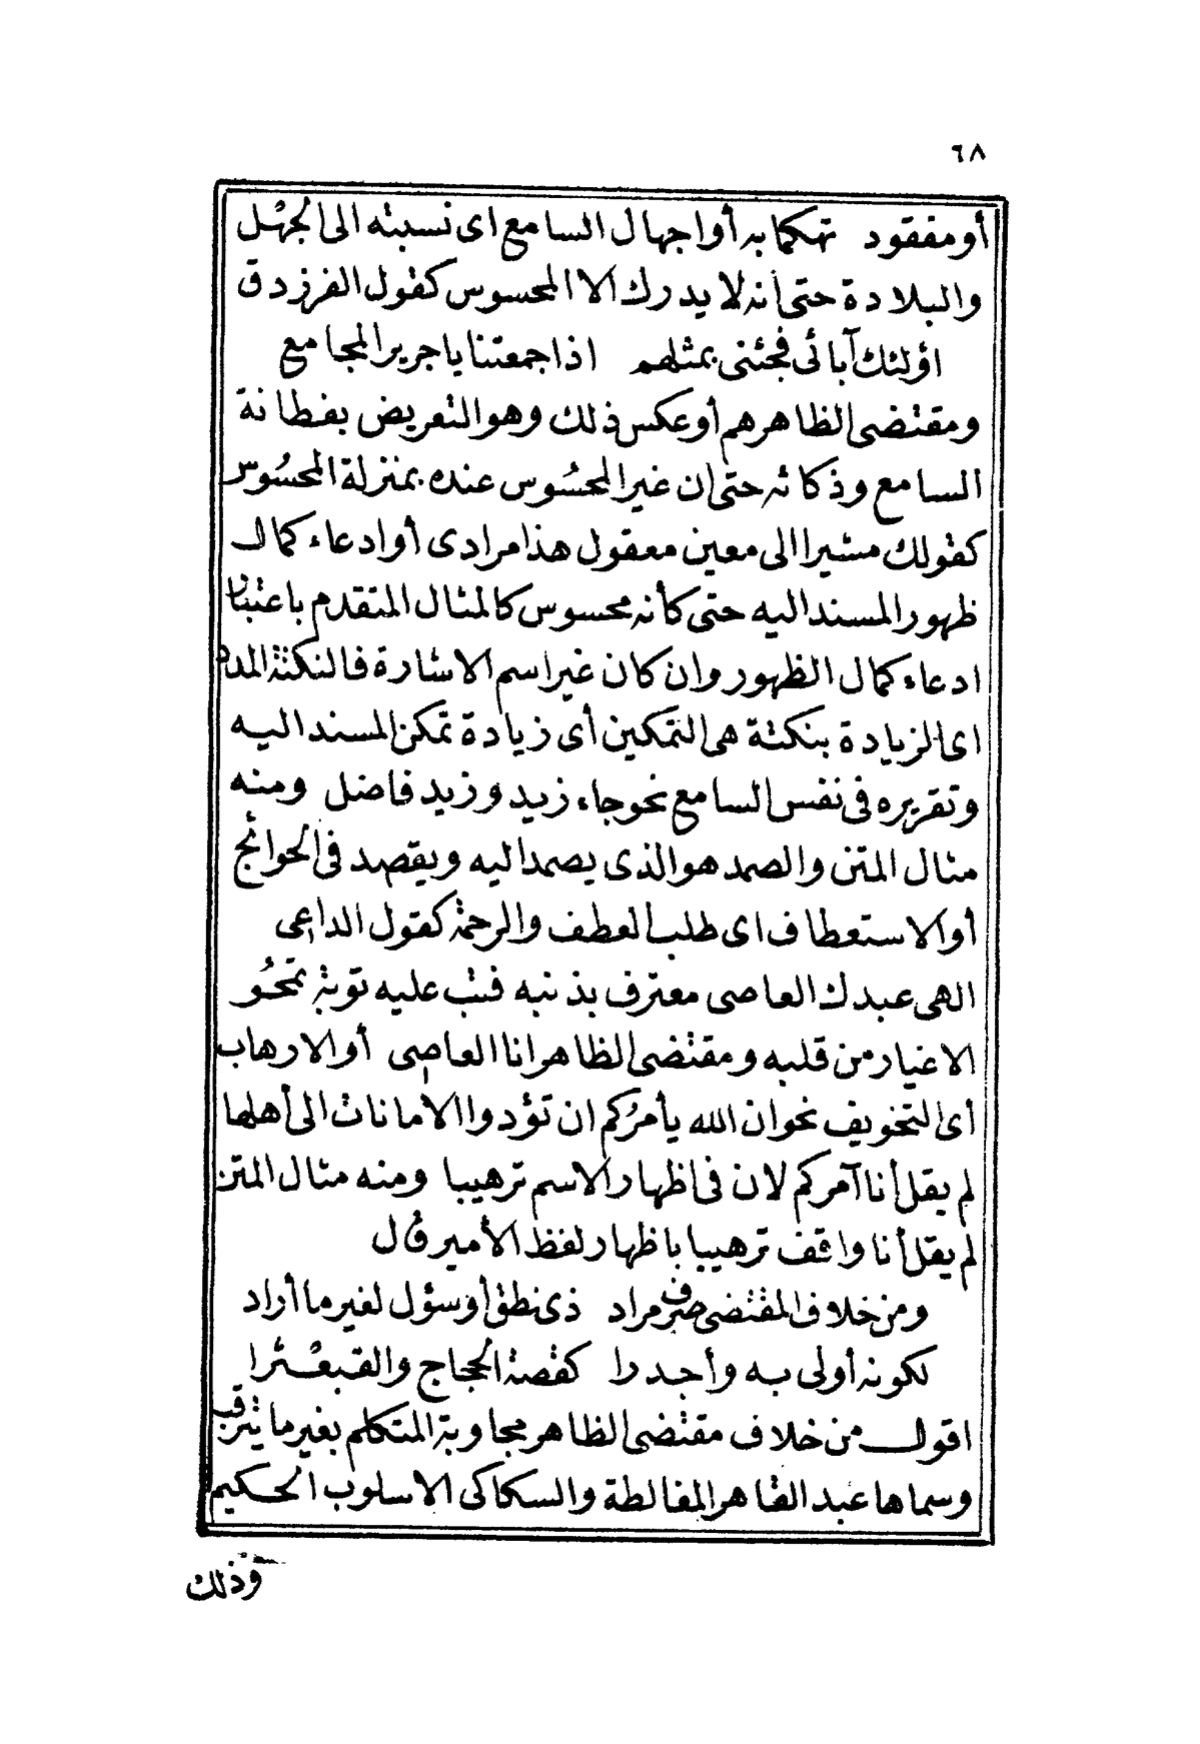 ٦٨
أو مفقود تهكما به أو اجهال السامع اى نسبته الى الجهل
والبلادة حتى أنه لا يدرك الا المحسوس كقول الفرزدق
اؤلئك آبائى فجئنى بمثلهم اذا جمعتنا يا جرير المجامع
ومقتضى الظاهر هم أو عكس ذلك وهو التعريض بفطانة
السامع وذكائه حتى ان غير المحسُوس عنده بمنزلة المحسُوس
كقولك مشيرا الى معين معقول هذا مرادى أو ادعاء كمال
ظهور المسند اليه حتى كأنه محسوس كالمثال المتقدم باعتبار
ادعاء كمال الظهور وان كان غير اسم الاشارة فالنكتة المدد
اى الزيادة بنكتة هى التمكين أى زيادة تمكن المسند اليه
وتقريره فى نفس السامع نحو جاء زيد وزيد فاضل ومنه
مثال المتن والصمد هو الذى يصمد اليه ويقصد فى الحوائج
أو الاستعطاف اى طلب العطف والرحمة كقول الداعى
الهى عبدك العاصى معترف بذنبه فتب عليه توبة تمحُو
الاغيار من قلبه ومقتضى الظاهر انا العاصى أو الارهاب
أى التخويف نحو ان الله يأمرُكم ان تؤدوا الامانات الى أهلها
لم يقل أنا آمركم لان فى اظهار الاسم ترهيبا ومنه مثال المتن
لم يقل أنا واقف ترهيبا باظهار لفظ الأمير قُال
ومن خلاف المقتضى صرف مراد ذى نطق أو سؤل لغير ما أراد
لكونه أولى به وأجدرا كقصة الحجاج والقبعْثرا
اقول من خلاف مقتضى الظاهر مجاوبة المتكلم بغير ما يترقب
وسماها عبد القاهر المغالطة والسكاكى الاسلوب الحكيم
وذلك